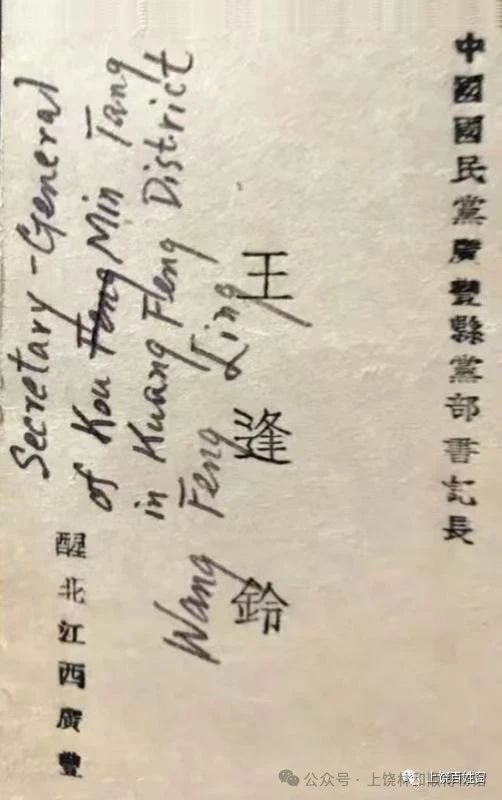 中國國民黨廣豐縣黨部書記長
王逢鈴
醒北江西廣豐
Secretary-General
of Kou Feng Min Tang
in Kuang Feng District
Wang Feng Ling
公众号·上饶
上饶百姓窗